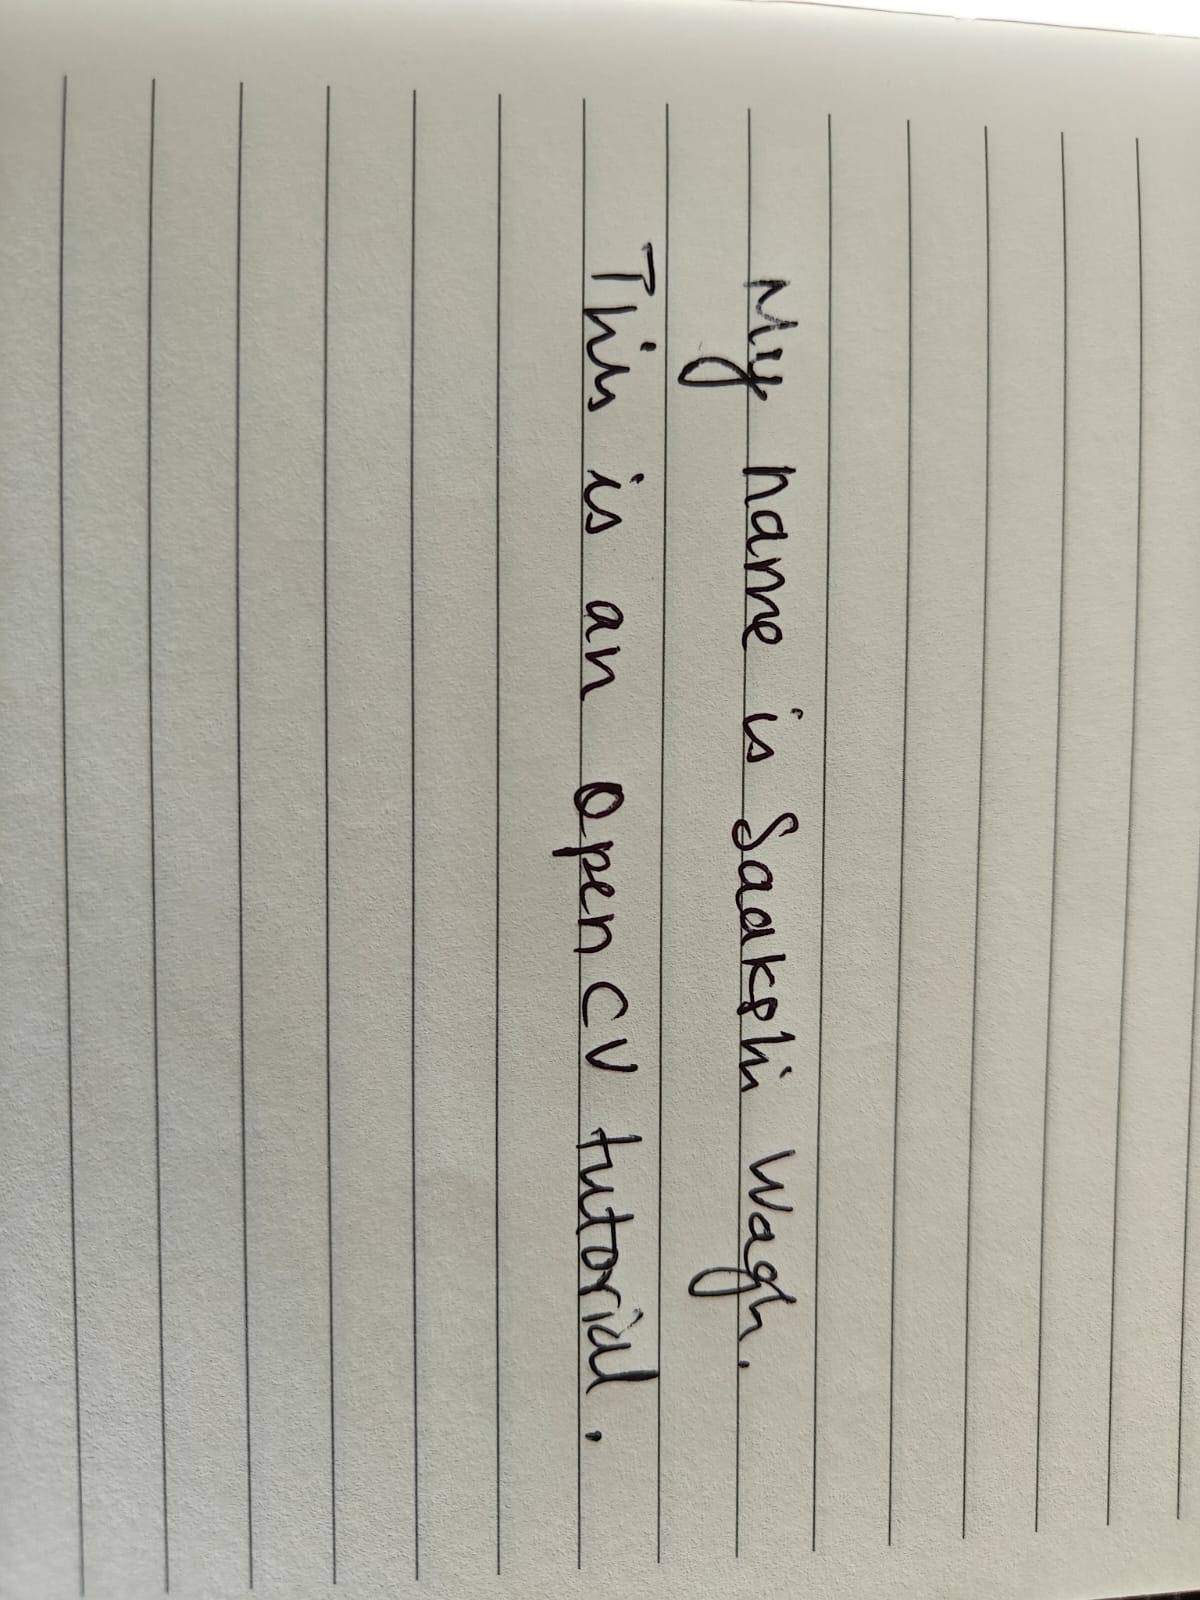 My name is Saakshi Wagh.
This is an open CV tutorial.